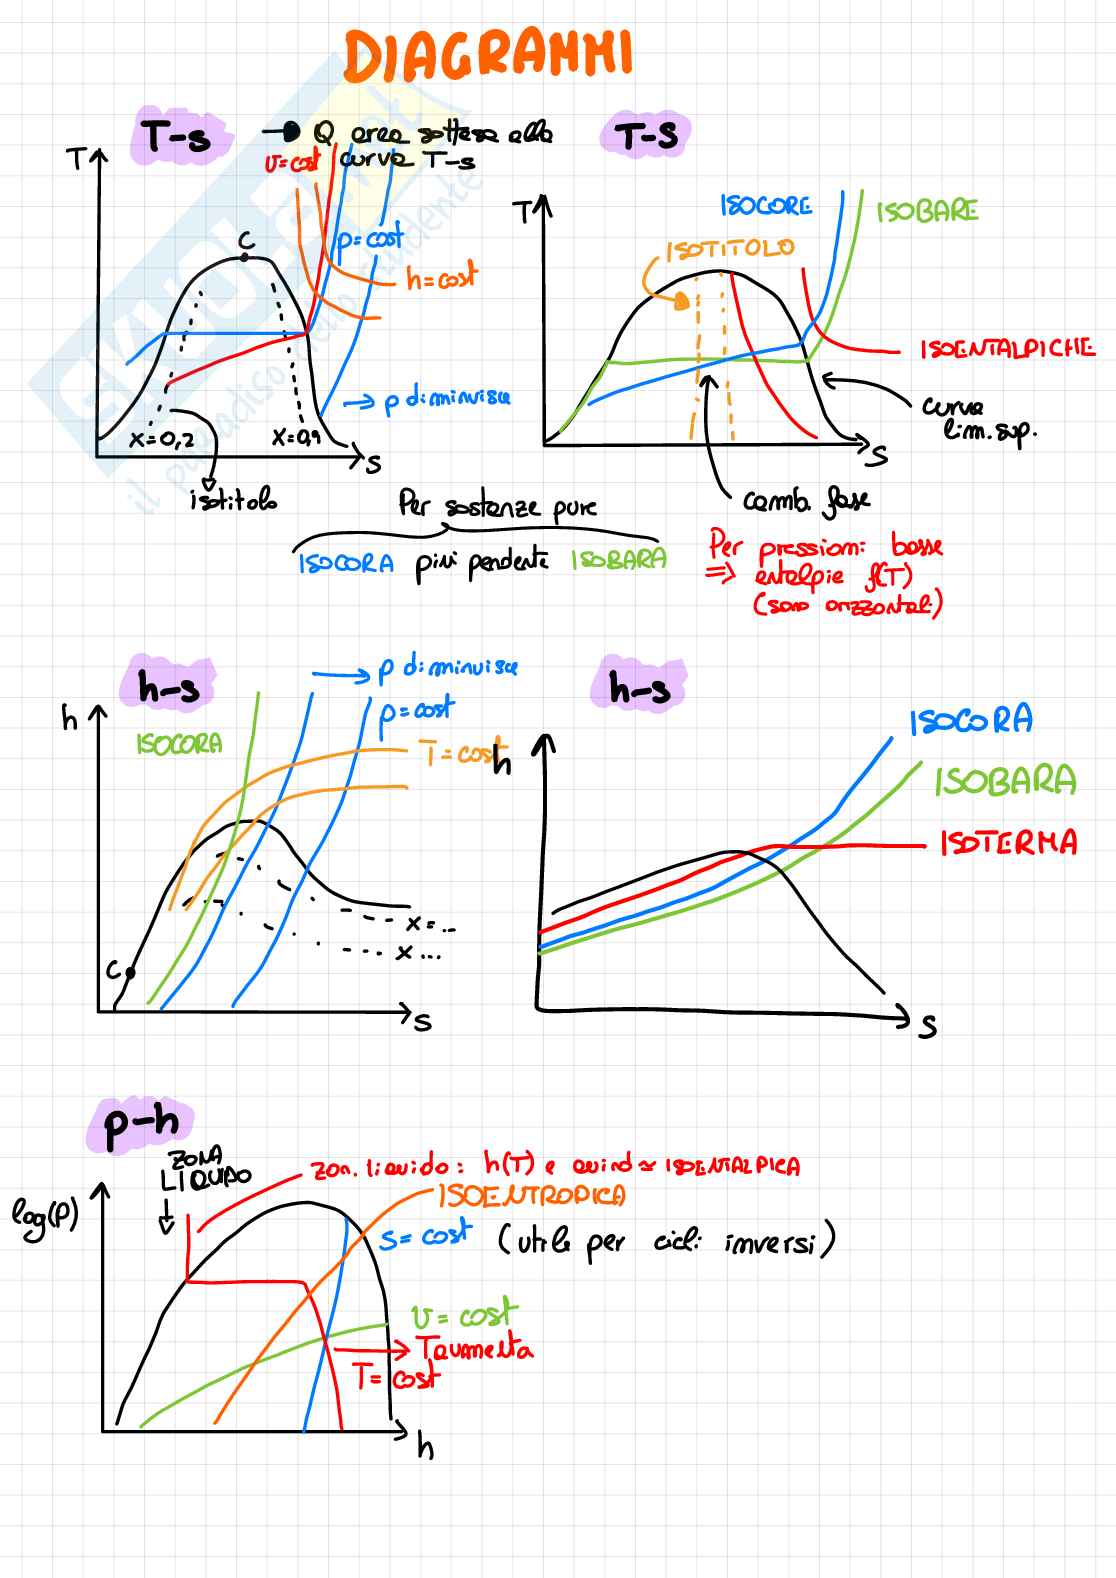 DIAGRAMMI
T-s
Q area sottesa alla
curva T-s
T
v=cost
C
p=cost
h=cost
p diminuisce
x=0,2
x=0,9
s
isotitolo
T-S
T
ISOCORE
ISOBARE
ISOTITOLO
ISOENTALPICHE
curva
lim.sup.
S
camb. fase
Per sostanze pure
ISOCORA più pendente ISOBARA
Per pressioni basse
⇒ entalpie f(T)
(sono orizzontali)
h-s
p diminuisce
p=cost
h
ISOCORA
T=cost
C
x=...
x...
S
h-s
h
ISOCORA
ISOBARA
ISOTERMA
S
p-h
ZONA
LIQUIDO
zon. liquido: h(T) e quindi ≈ ISOENTALPICA
log(P)
ISOENTROPICA
s=cost (utile per cicli inversi)
v=cost
T aumenta
T=cost
h